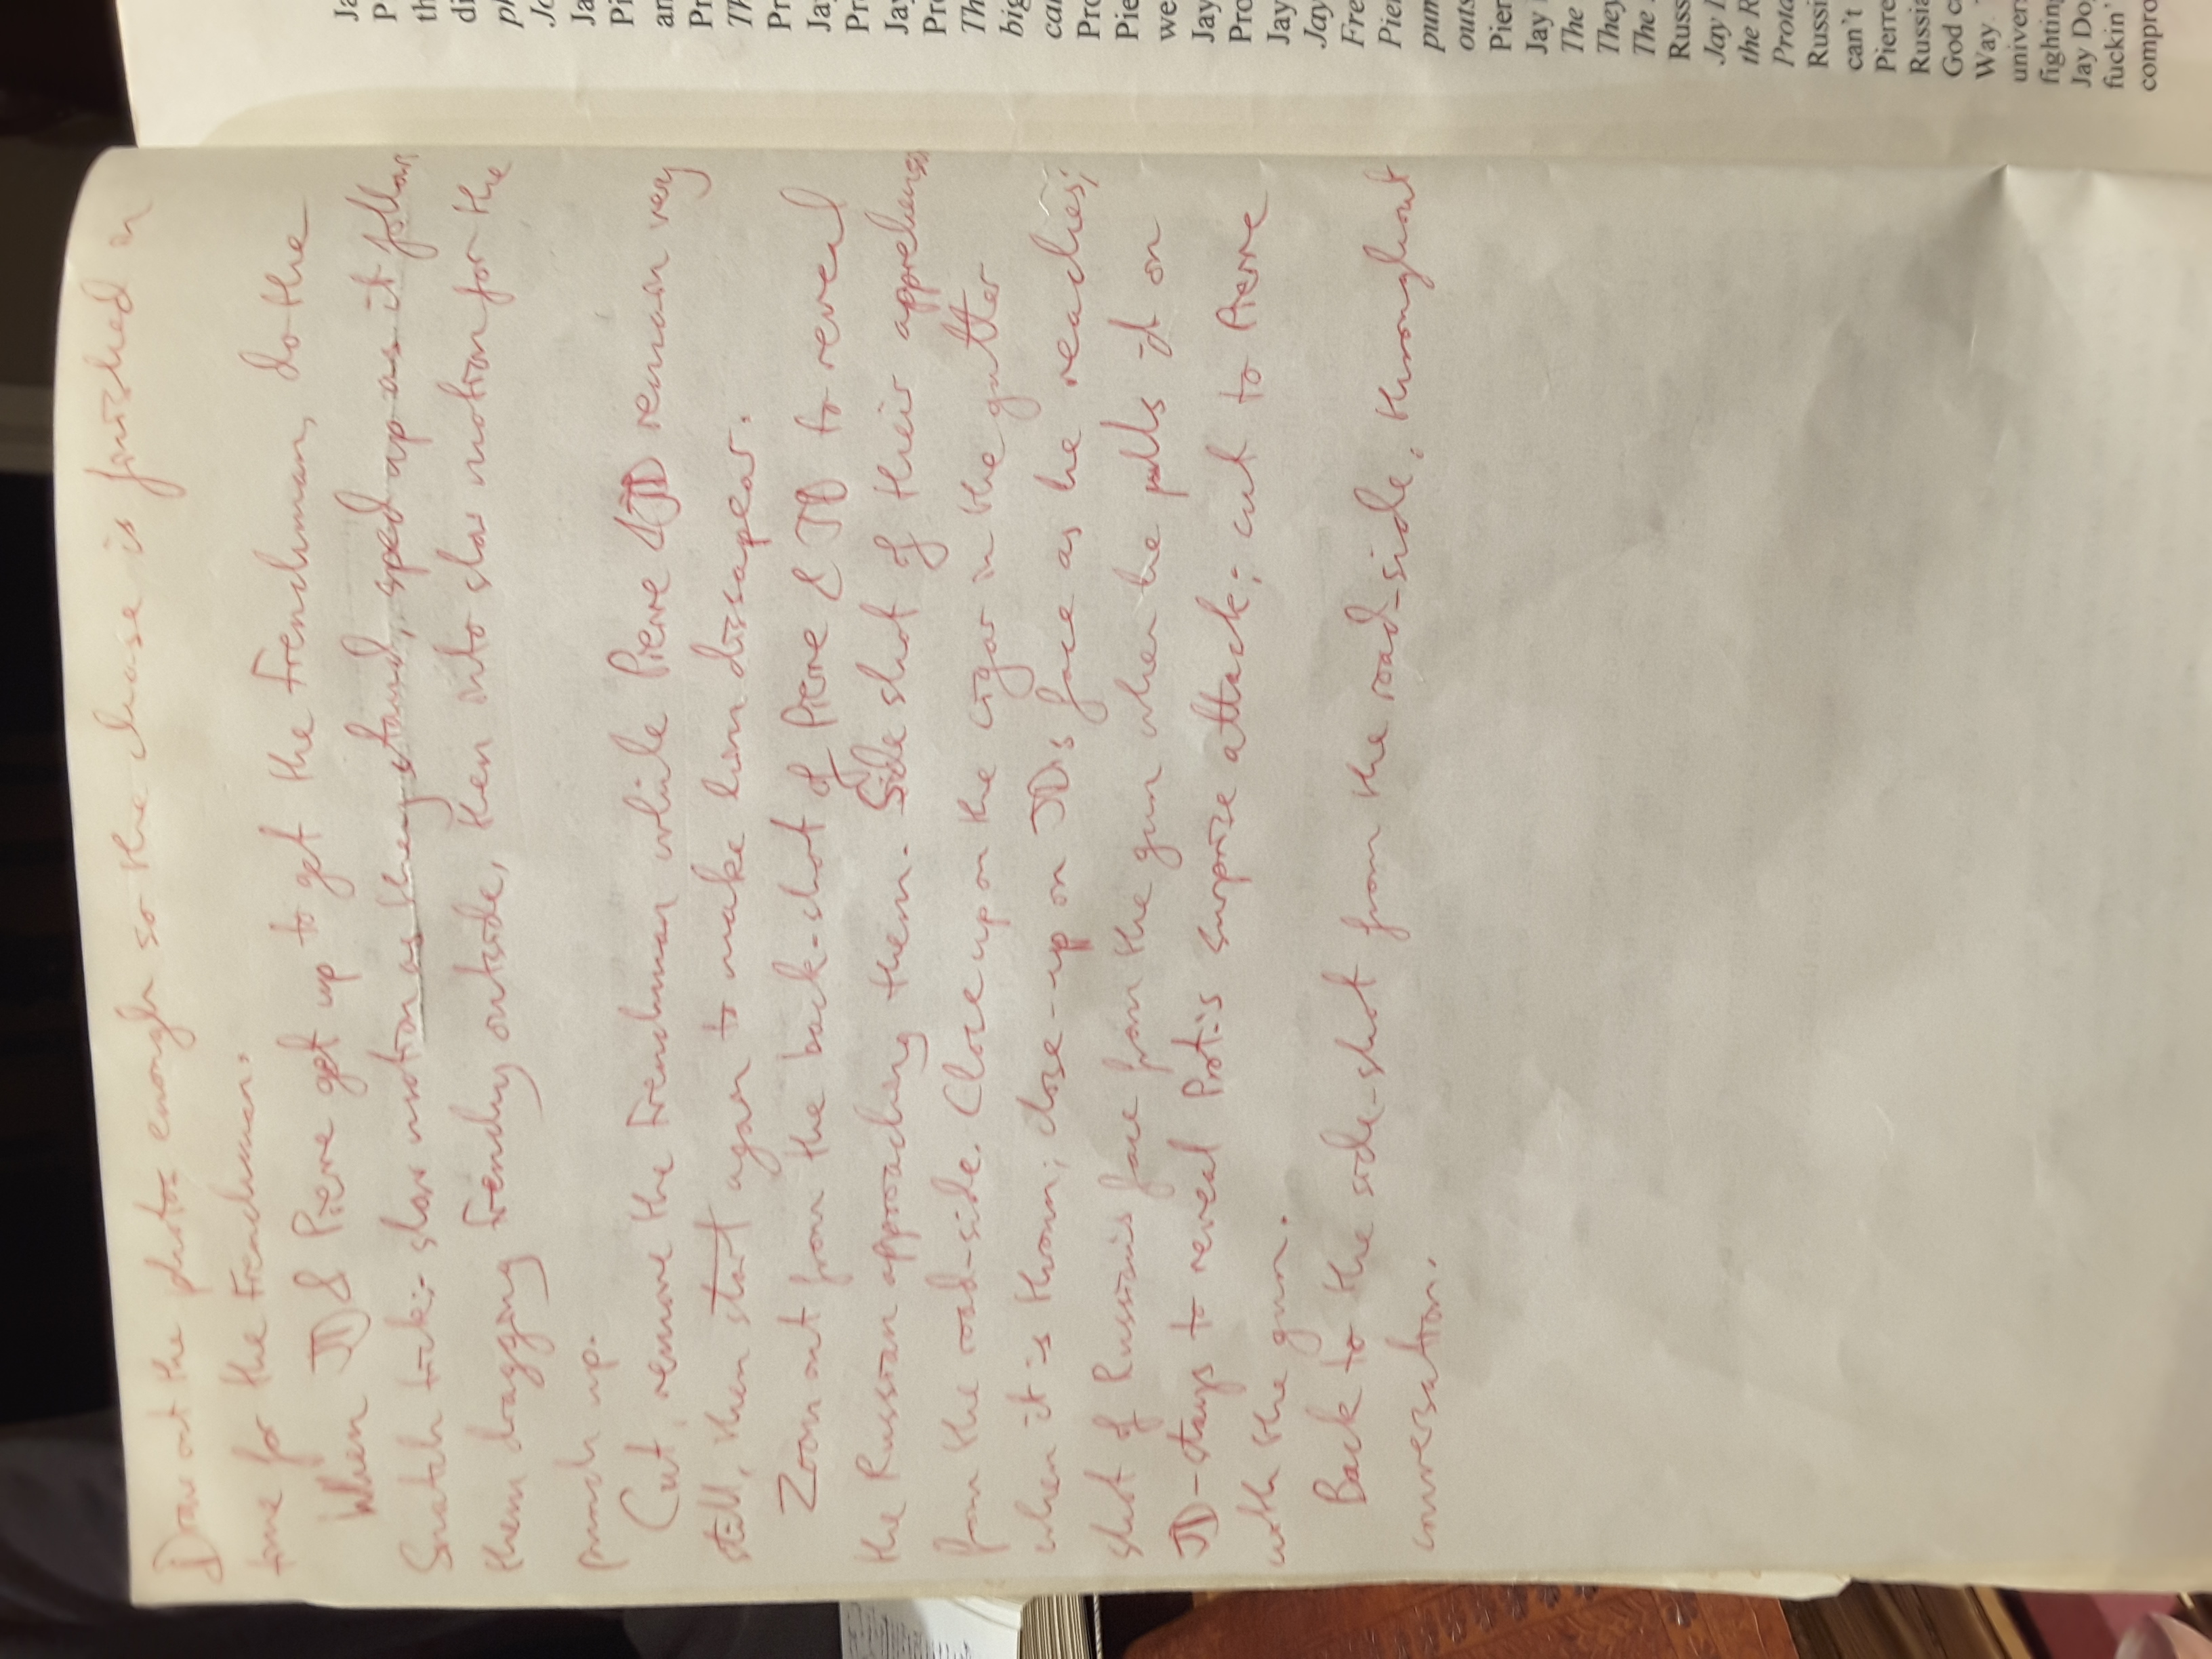 Draw out the photos enough so the chase is finished in
time for the Frenchman.
When JD & Pierre get up to get the Frenchman, do the
Snatch trick:- slow motion as they stand, sped up as it follows
them dragging Frenchy outside, then into slow motion for the
punch up.
Cut, remove the Frenchman while Pierre & JD remain very
still, then start again to make him dissapear.
Zoom out from the back-shot of Pierre & JD to reveal
the Russian approaching them. Side shot of their apprehension
from the road-side. Close up on the cigar in the gutter
when it is thrown; close-up on JD's face as he reaches;
shot of Russian's face from the gun when he pulls it on
JD - stays to reveal Prot.'s surprise attack; cut to Pierre
with the gun.
Back to the side-shot from the road-side, throughout
conversation.
Ja
P
th
di
ph
Jo
Ja
Pi
an
Pr
Th
Pr
Jay
Pro
Jay
Pro
Th
big
car
Pro
Pie
we
Jay
Pro
Jay
Jay
Fre
Pier
pum
outs
Pier
Jay
The
They
The
Russ
Jay
the R
Prota
Russi
can't
Pierre
Russia
God c
Way.
univers
fighting
Jay Do
fuckin'
compro